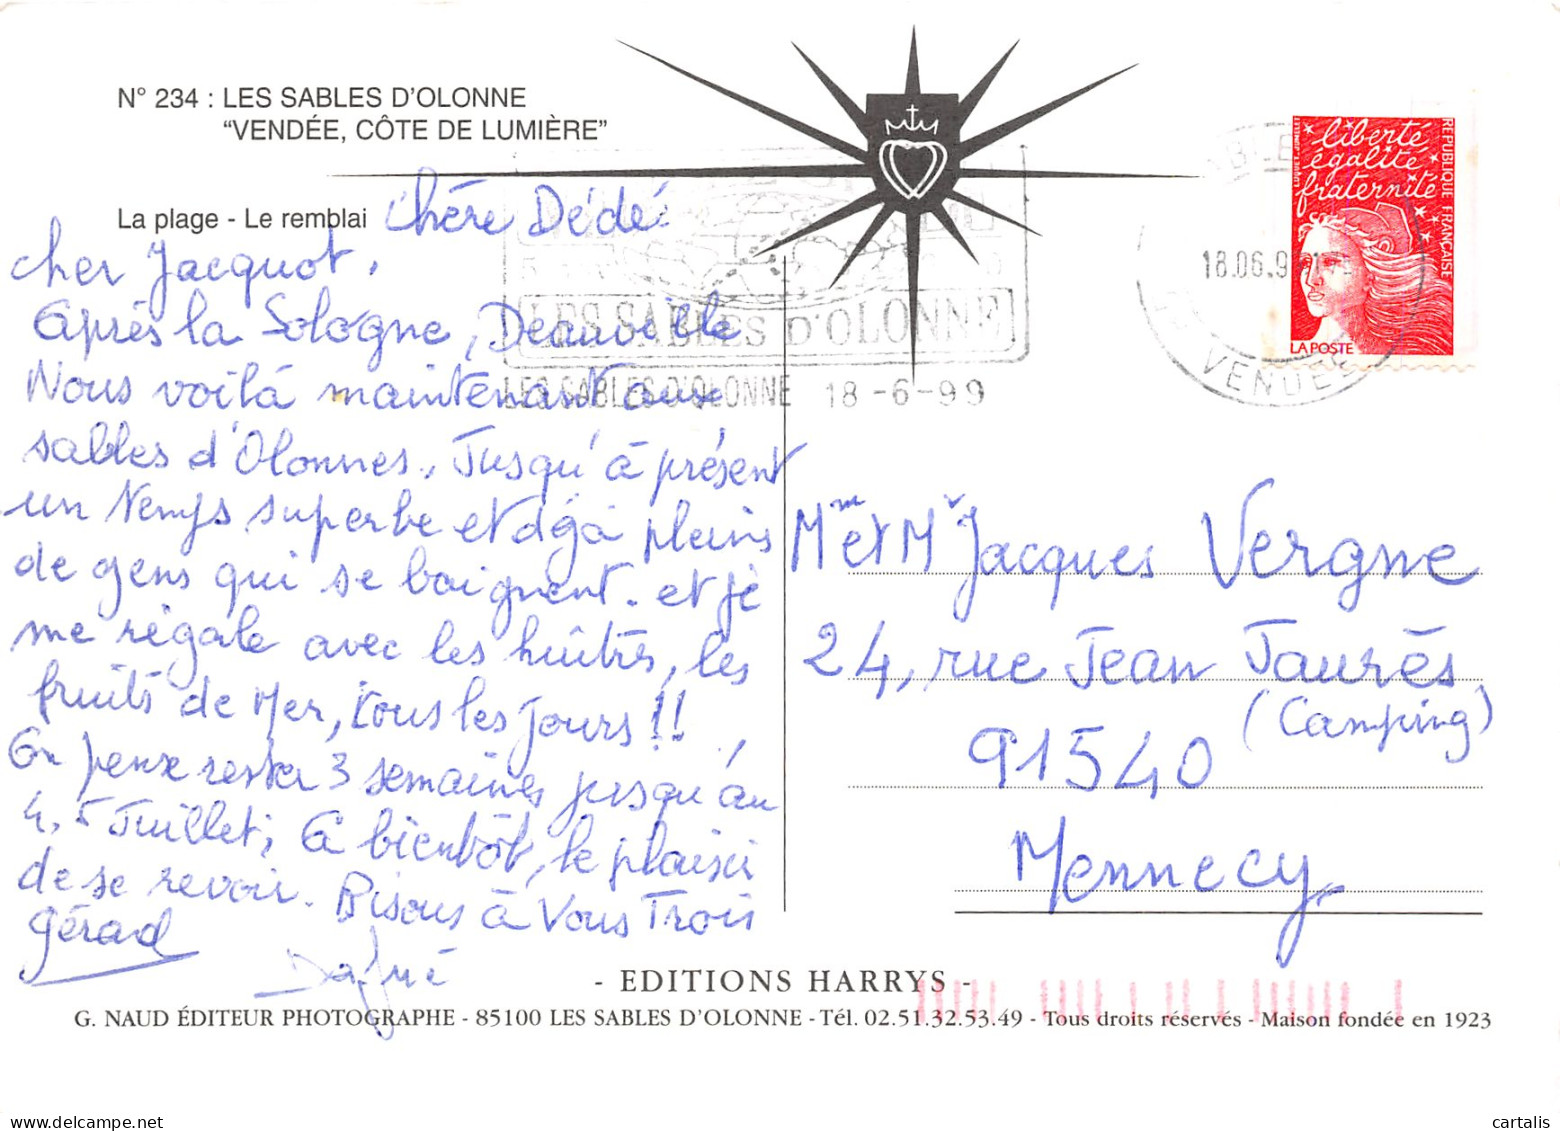 N° 234 : LES SABLES D'OLONNE
"VENDÉE, CÔTE DE LUMIÈRE"
La plage - Le remblai
Chère Dédé
cher Jacquot,
Après la Sologne, Deauville
Nous voilà maintenant aux
sables d'Olonnes, Jusqu'à présent
un temps superbe et dejà pleins
de gens qui se baignent. et je
me régale avec les huîtres, les
fruits de Mer, tous les jours !!
On pense rester 3 semaines jusqu'au
4, 5 Juillet; A bientôt, le plaisir
de se revoir. Bisous à Vous Trois
Gérad
LES SABLES D'OLONNE
LES SABLES D'OLONNE 18-6-99
18.06.9
VENDEE
liberté
égalité
fraternité
REPUBLIQUE FRANÇAISE
LA POSTE
Mme et Mr Jacques Vergne
24, rue Jean Jaurès
(Camping)
91540
Mennecy
- EDITIONS HARRYS -
G. NAUD ÉDITEUR PHOTOGRAPHE - 85100 LES SABLES D'OLONNE - Tél. 02.51.32.53.49 - Tous droits réservés - Maison fondée en 1923
cartalis